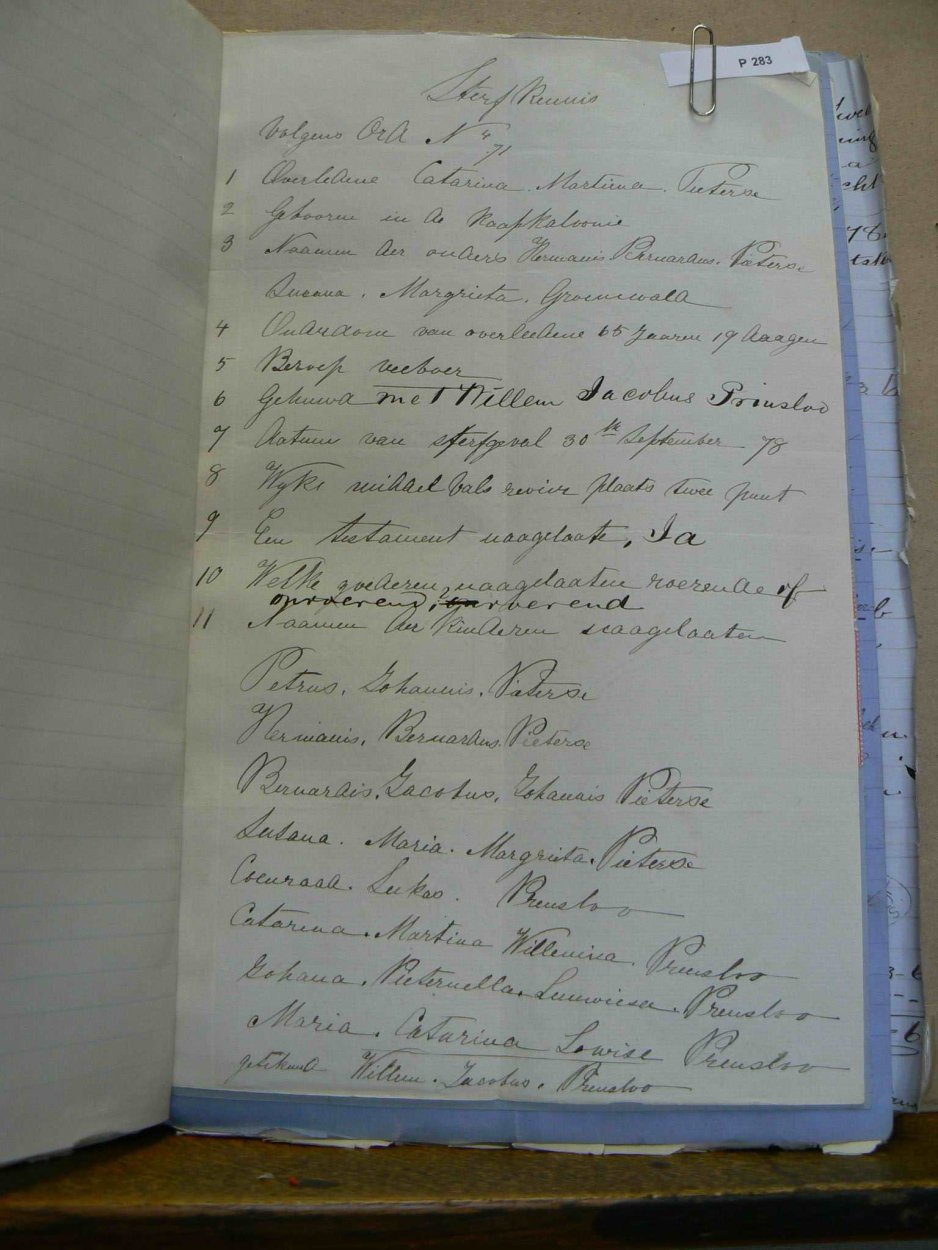 P 283
Sterf Kennis
Volgens Ord N 4/71
1 Overledene Catarina. Martiena. Pieterse
2 Gebooren in de Kaapkaloonie
3 Naamen der ouders Hermanis Bernardus. Pieterse
Susana. Margrieta. Groenewald
4 Ouderdom van overledene 65 Jaaren 19 daagen
5 Beroep veeboer
6 Gehuwd met Willem Jacobus Prinsloo
7 Datum van sterfgeval 30ste September 78
8 Wyk middel vals revier plaats twee punt
9 Een testament naagelaate, Ja
10 Welke goederen naagelaaten roerende of
onroerend, roerend
11 Naamen der Kinderen naagelaaten
Petrus. Johannis. Pieterse
Hermanis. Bernardus. Pieterse
Bernardis. Jacobus. Johannis Pieterse
Susana. Maria. Margrieta. Pieterse
Coenraad. Lukas. Prensloo
Catarina. Martina Willemina. Prensloo
Johana. Pieternella. Prensloo
Maria. Catarina Lowise Prensloo
getekend Willem. Jacobus. Prensloo